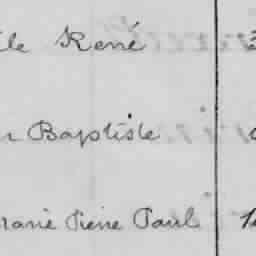 le René
Baptiste
Marie Pierre Paul